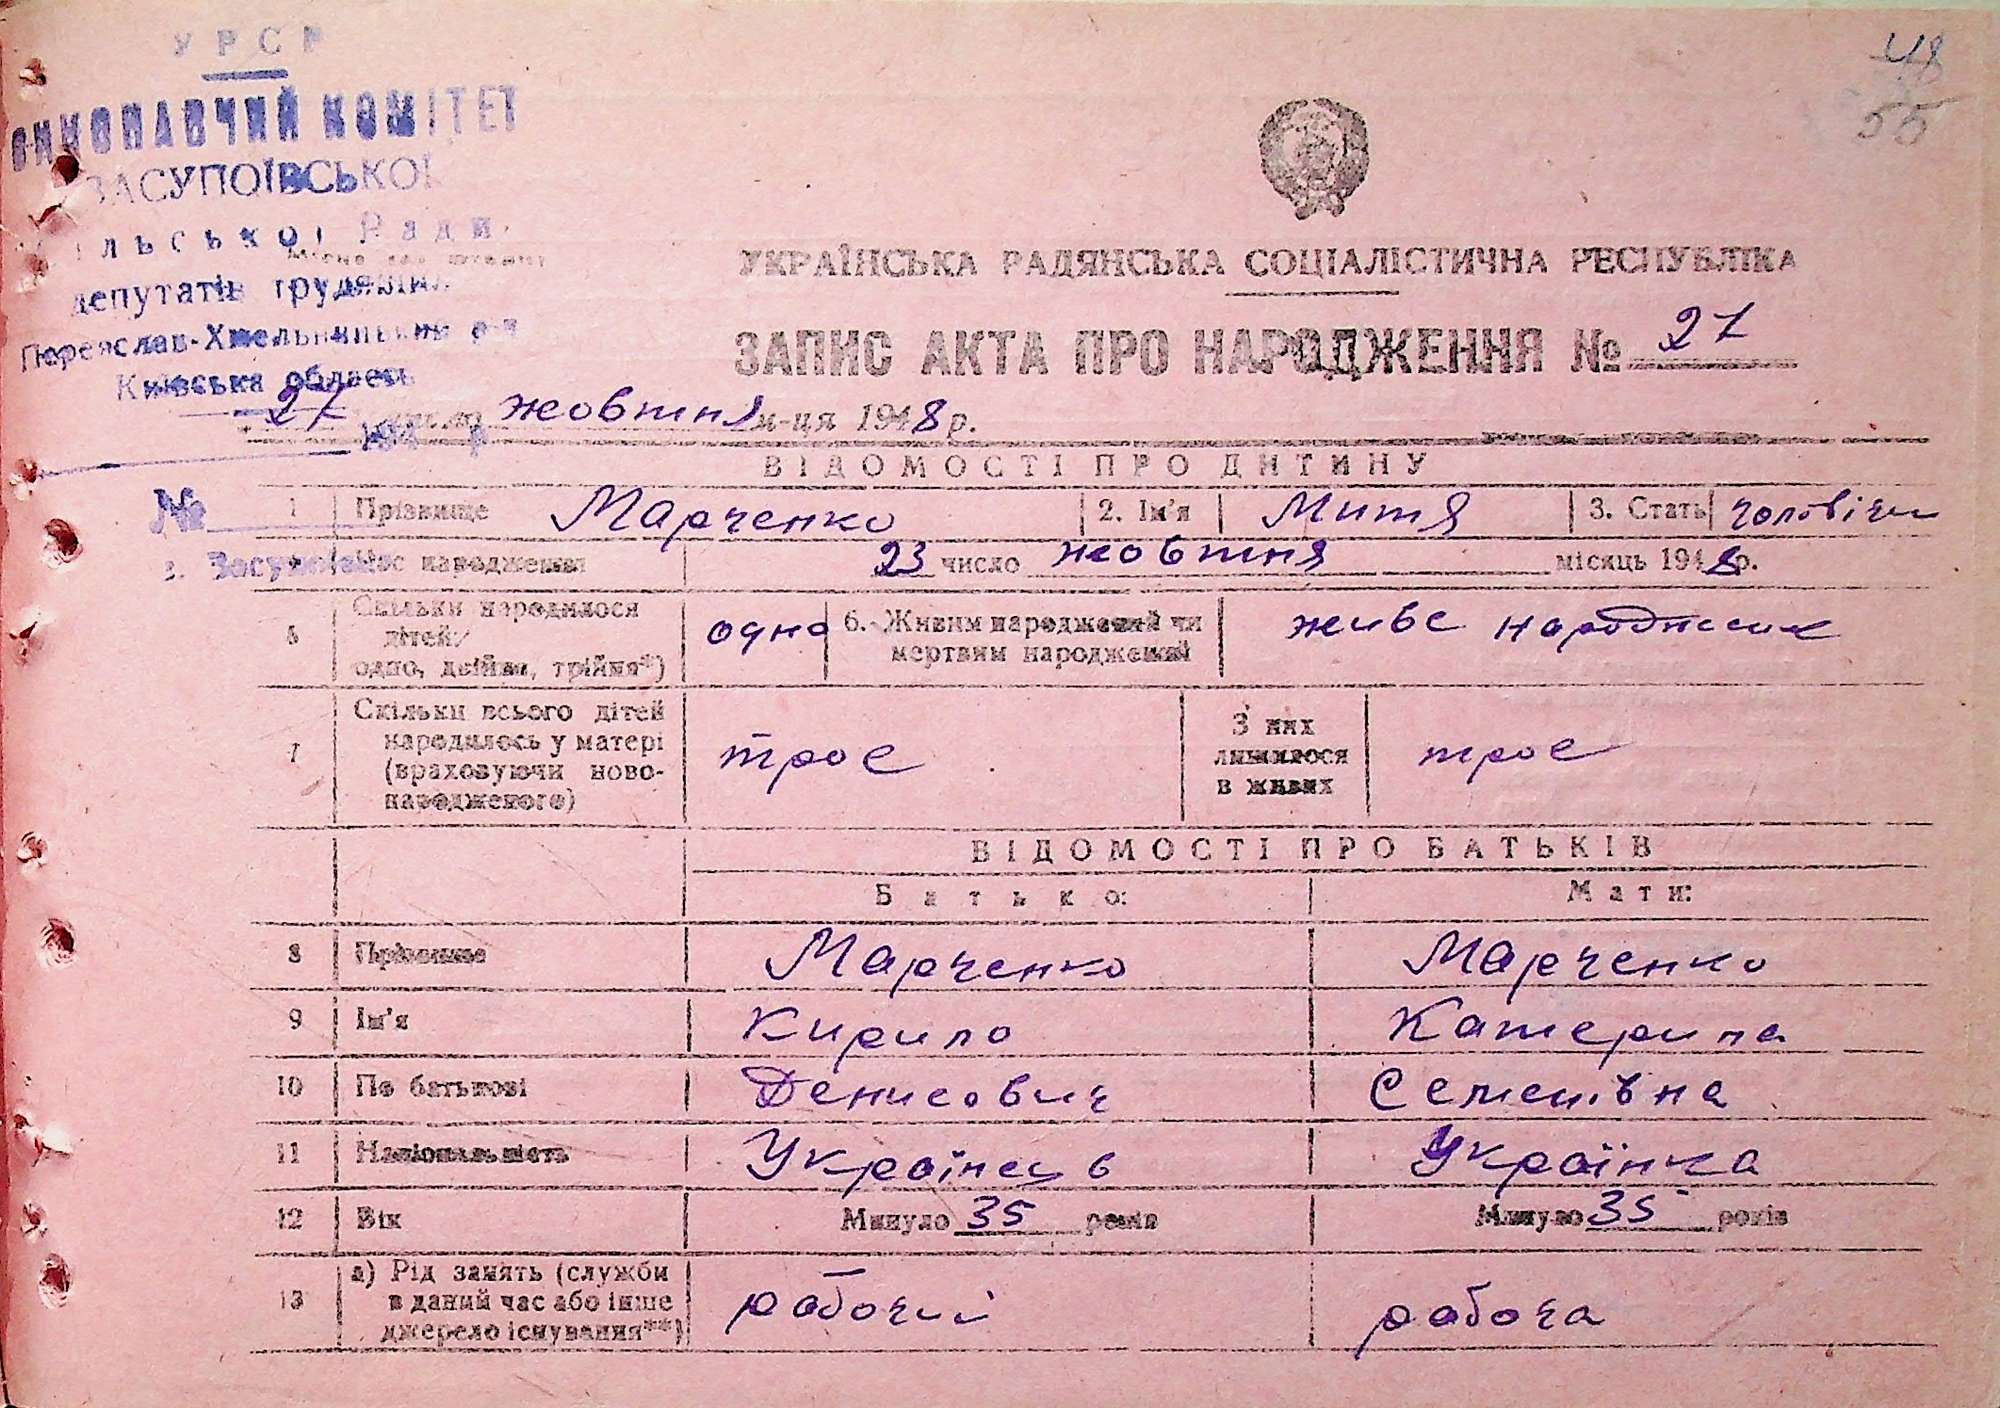 УРСР
48
ВИКОНАВЧИЙ КОМІТЕТ
55
ЗАСУПОЇВСЬКОЇ
сільської Ради
депутатів трудящих
УКРАЇНСЬКА РАДЯНСЬКА СОЦІАЛІСТИЧНА РЕСПУБЛІКА
Переяслав-Хмельницький р-н
ЗАПИС АКТА ПРО НАРОДЖЕННЯ № 27
Київська область
27 жовтня м-ця 1948 р.
194 р
ВІДОМОСТІ ПРО ДИТИНУ
№
1 Прізвище Марченко 2. Ім'я Митя 3. Стать чоловіч
с. Засупоївка
Час народження 23 число жовтня місяць 1948 р.
5 Скільки народилося дітей: одно, двійня, трійня*) одно 6. Живим народжений чи мертвим народжений живе народжене
7 Скільки всього дітей народилось у матері (враховуючи новонародженого) троє З них лишилося в живих троє
ВІДОМОСТІ ПРО БАТЬКІВ
Батько: Мати:
8 Прізвище Марченко Марченко
9 Ім'я Кирило Катерина
10 По батькові Денисович Семенівна
11 Національність Українець Українка
12 Вік Минуло 35 років Минуло 35 років
13 а) Рід занять (служби в даний час або інше джерело існування**) рабочий рабоча